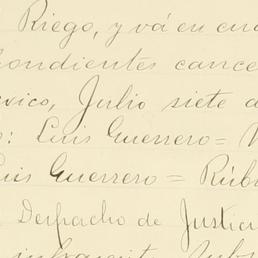 Riego, y vá en cua
pondientes cance
éxico, Julio siete d
o: Luis Guerrero=
Luis Guerrero = Rúbr
Despacho de Justicia
infrascrit Subs